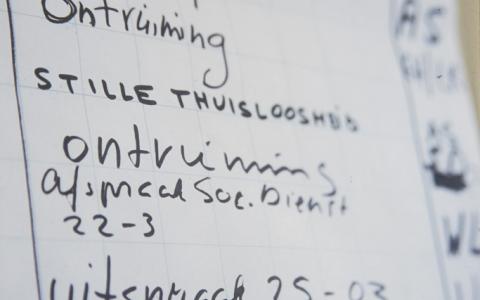 Ontruiming
STILLE THUISLOOSHEID
ontruiming
afspraak Soc. Dienst
22-3
uitspraak 25-03
AS